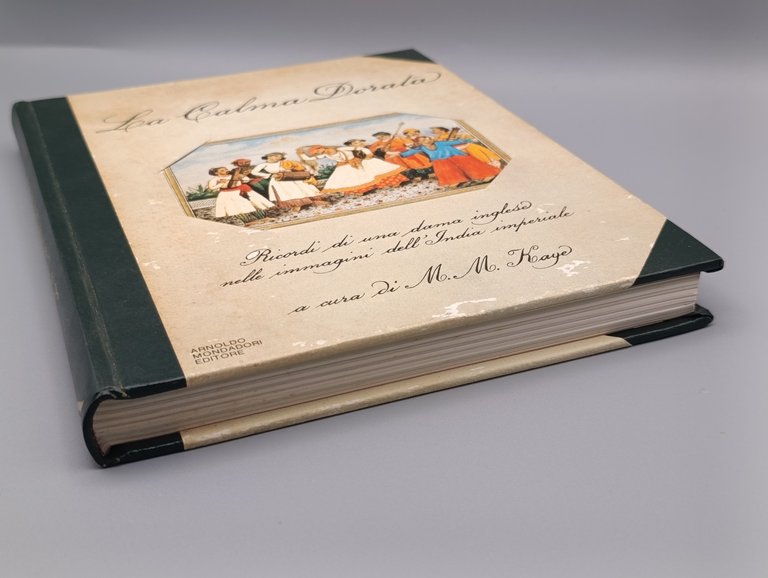 La Calma Dorata
Ricordi di una dama inglese
nelle immagini dell'India imperiale
a cura di M. M. Kaye
ARNOLDO
MONDADORI
EDITORE